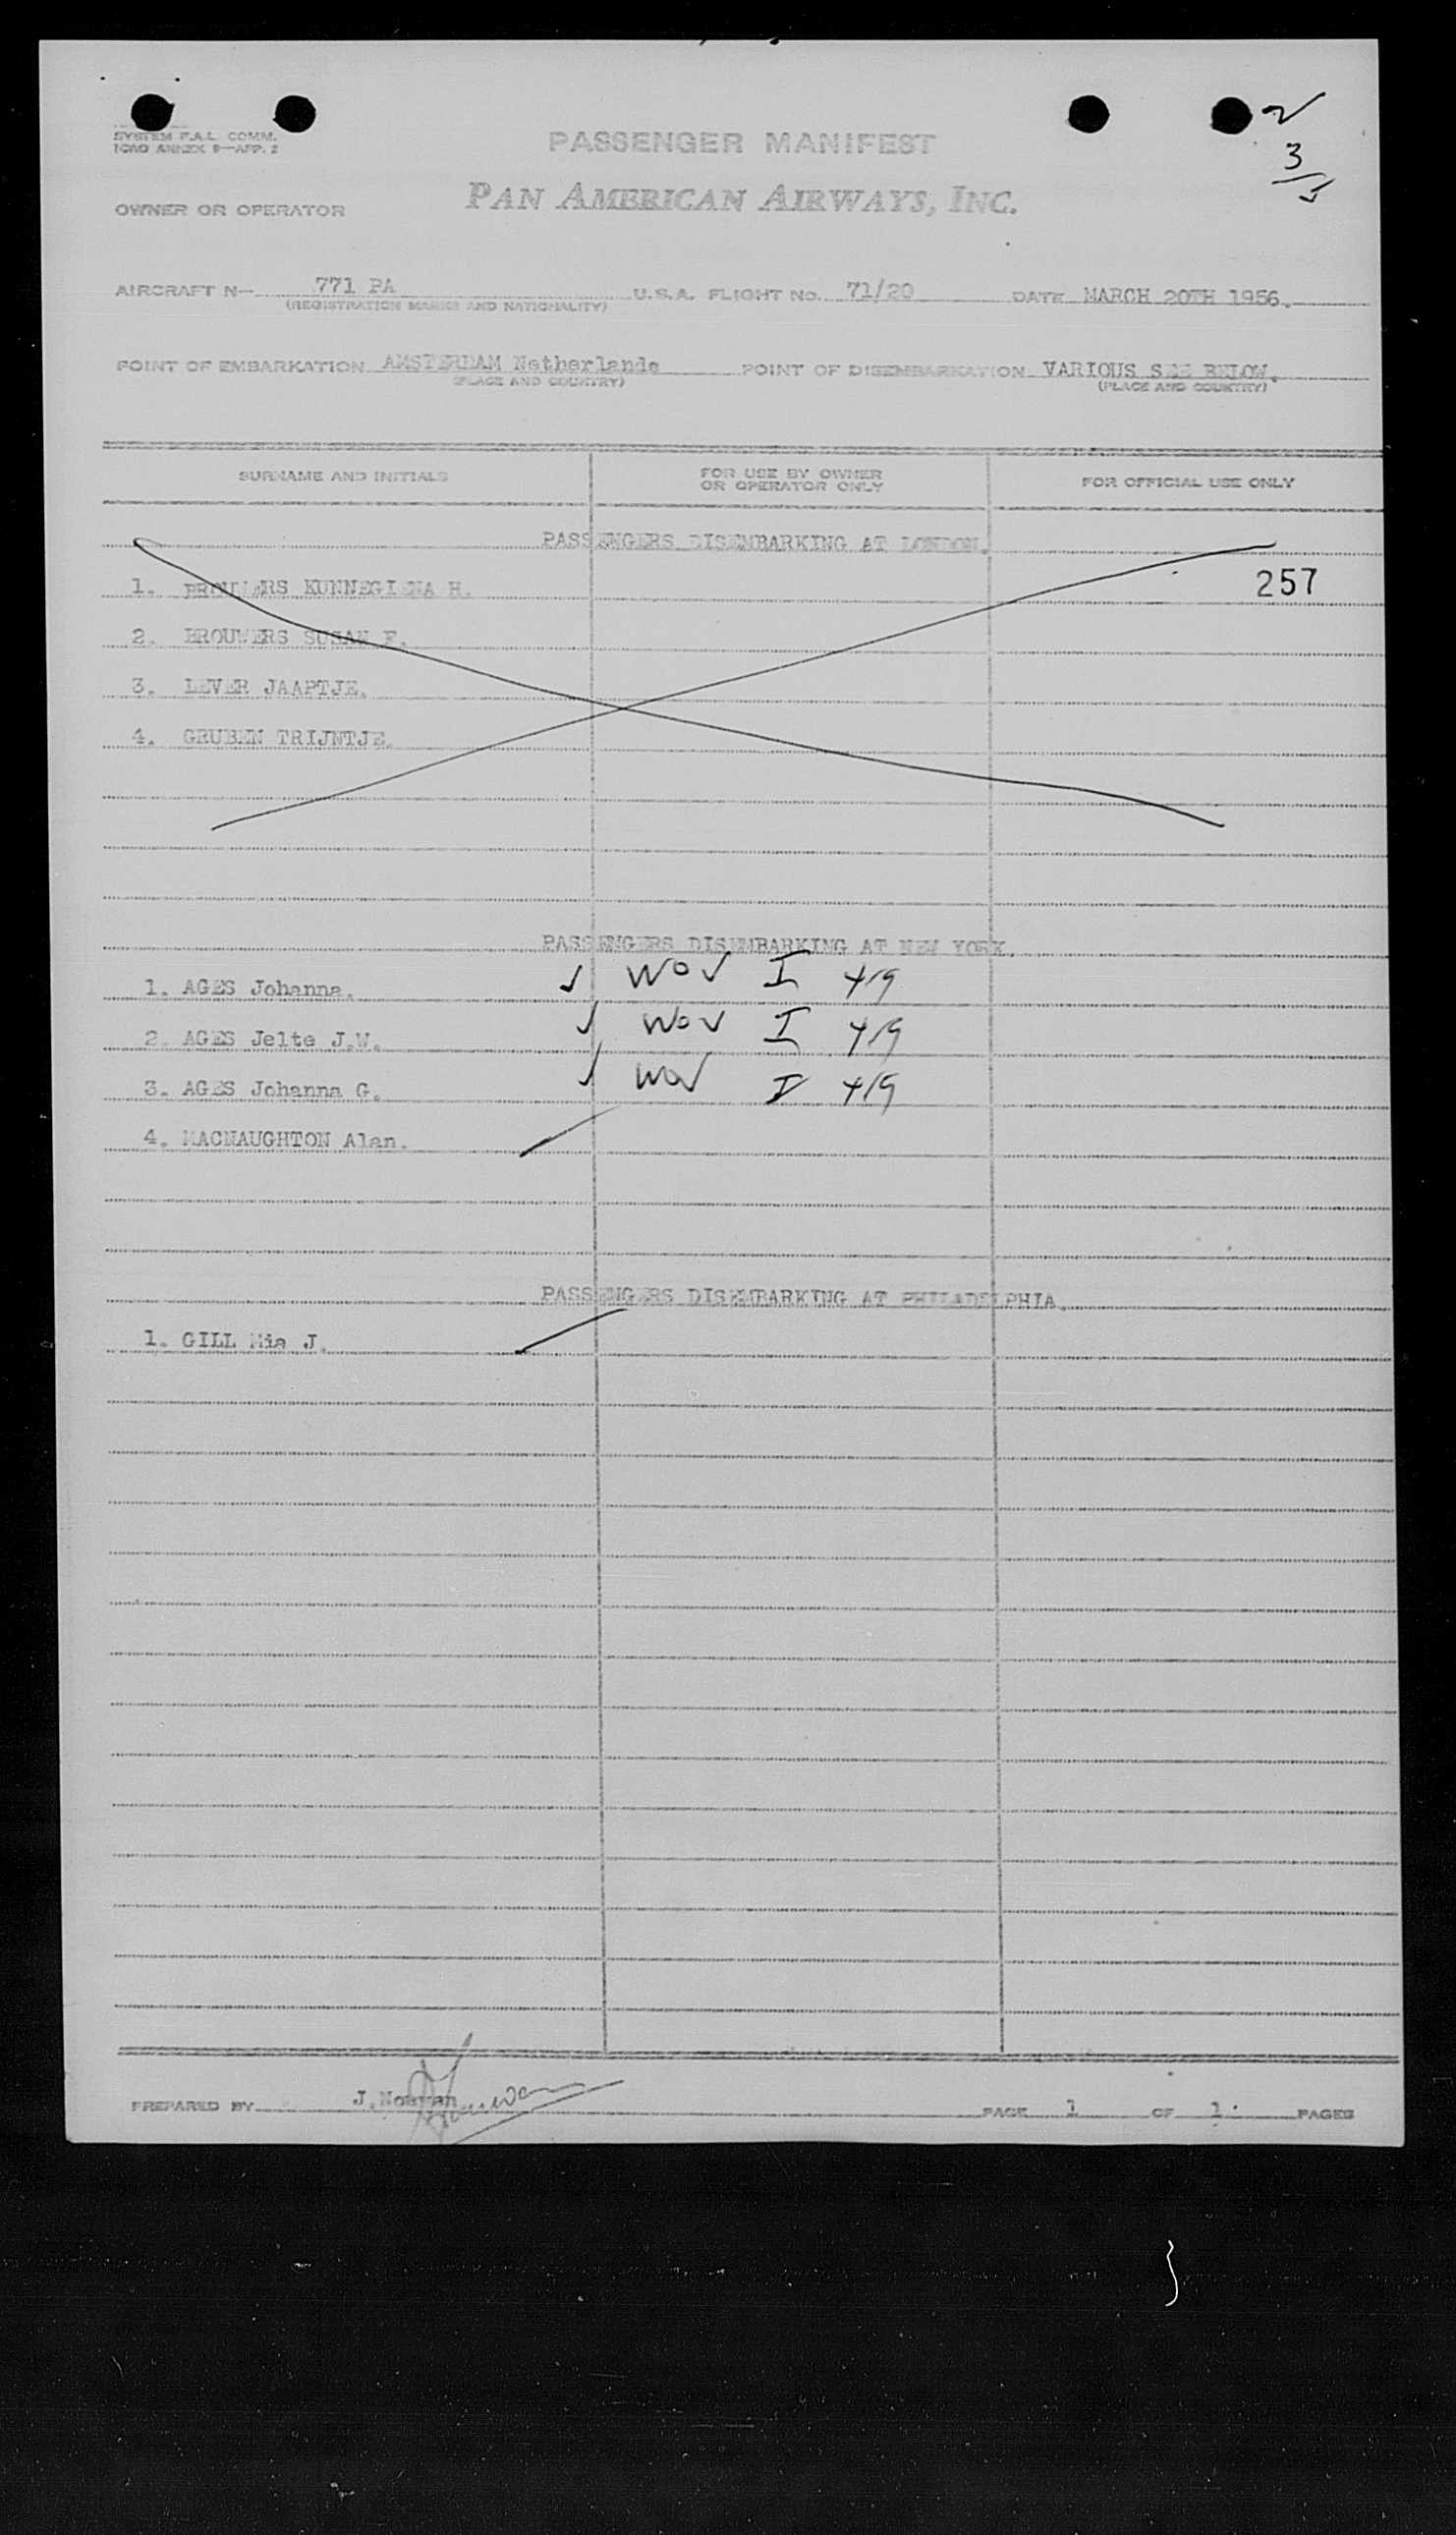 SYSTEM F.A.L. COMM.
ICAO ANNEX 9—APP. 2
PASSENGER MANIFEST
OWNER OR OPERATOR PAN AMERICAN AIRWAYS, INC.
2
3
5
AIRCRAFT N— 771 PA U.S.A. FLIGHT NO. 71/20 DATE MARCH 20TH 1956.
(REGISTRATION MARKS AND NATIONALITY)
POINT OF EMBARKATION AMSTERDAM Netherlands POINT OF DISEMBARKATION VARIOUS SEE BELOW.
(PLACE AND COUNTRY) (PLACE AND COUNTRY)
SURNAME AND INITIALS FOR USE BY OWNER OR OPERATOR ONLY FOR OFFICIAL USE ONLY
PASSENGERS DISEMBARKING AT LONDON.
1. BROUWERS KUNNEGIENA H. 257
2. BROUWERS SUSAN F.
3. LEVER JAAPTJE.
4. GRUBEN TRIJNTJE.
PASSENGERS DISEMBARKING AT NEW YORK.
1. AGES Johanna. ✓ WOV I 4/9
2. AGES Jelte J.W. ✓ WOV I 4/9
3. AGES Johanna G. ✓ WOV I 4/9
4. MACNAUGHTON Alan.
PASSENGERS DISEMBARKING AT PHILADELPHIA.
1. GILL Mia J.
PREPARED BY J. PAGE 1 OF 1. PAGES